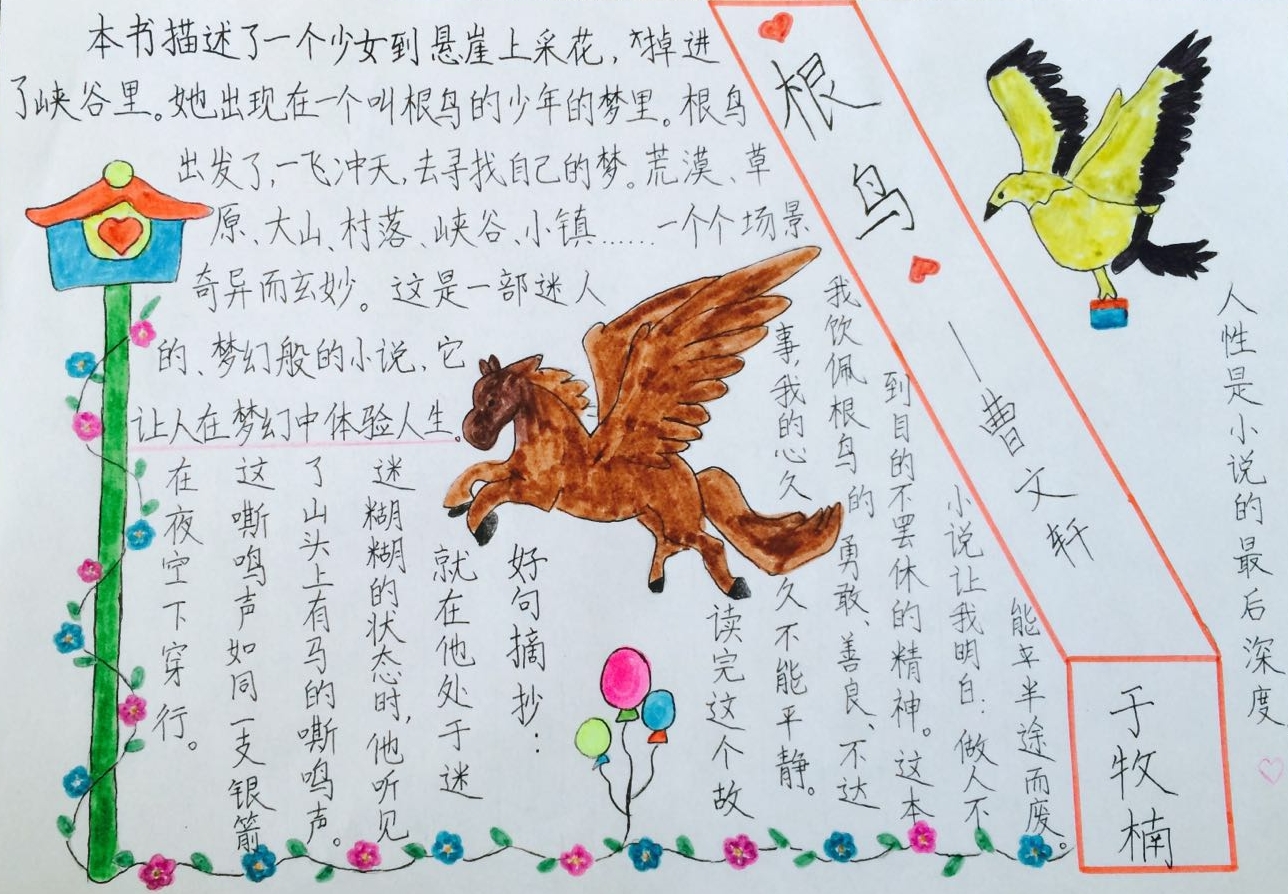 本书描述了一个少女到悬崖上采花，掉进
了峡谷里。她出现在一个叫根鸟的少年的梦里。根鸟
出发了，一飞冲天，去寻找自己的梦。荒漠、草
原、大山、村落、峡谷、小镇……一个个场景
奇异而玄妙。这是一部迷人
的、梦幻般的小说，它
让人在梦幻中体验人生。
好句摘抄：
就在他处于迷
迷糊糊的状态时，他听见
了山头上有马的嘶鸣声。
这嘶鸣声如同一支银箭
在夜空下穿行。
读完这个故
事，我的心久久不能平静。
我饮佩根鸟的勇敢、善良、不达
到目的不罢休的精神。这本
小说让我明白：做人不
能平半途而废。
根鸟
——曹文轩
于牧楠
人性是小说的最后深度